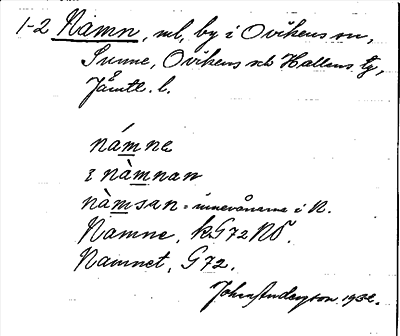 1-2 Namn, vbl, by i Ovikens sn,
Sunne, Ovikens och Hallens tg,
Jämtl. l.
námne
i nàmnan
nàmsan = invånarna i N.
Namne, kG72NÖ.
Namnet, G72.
John Anderzon 1932.